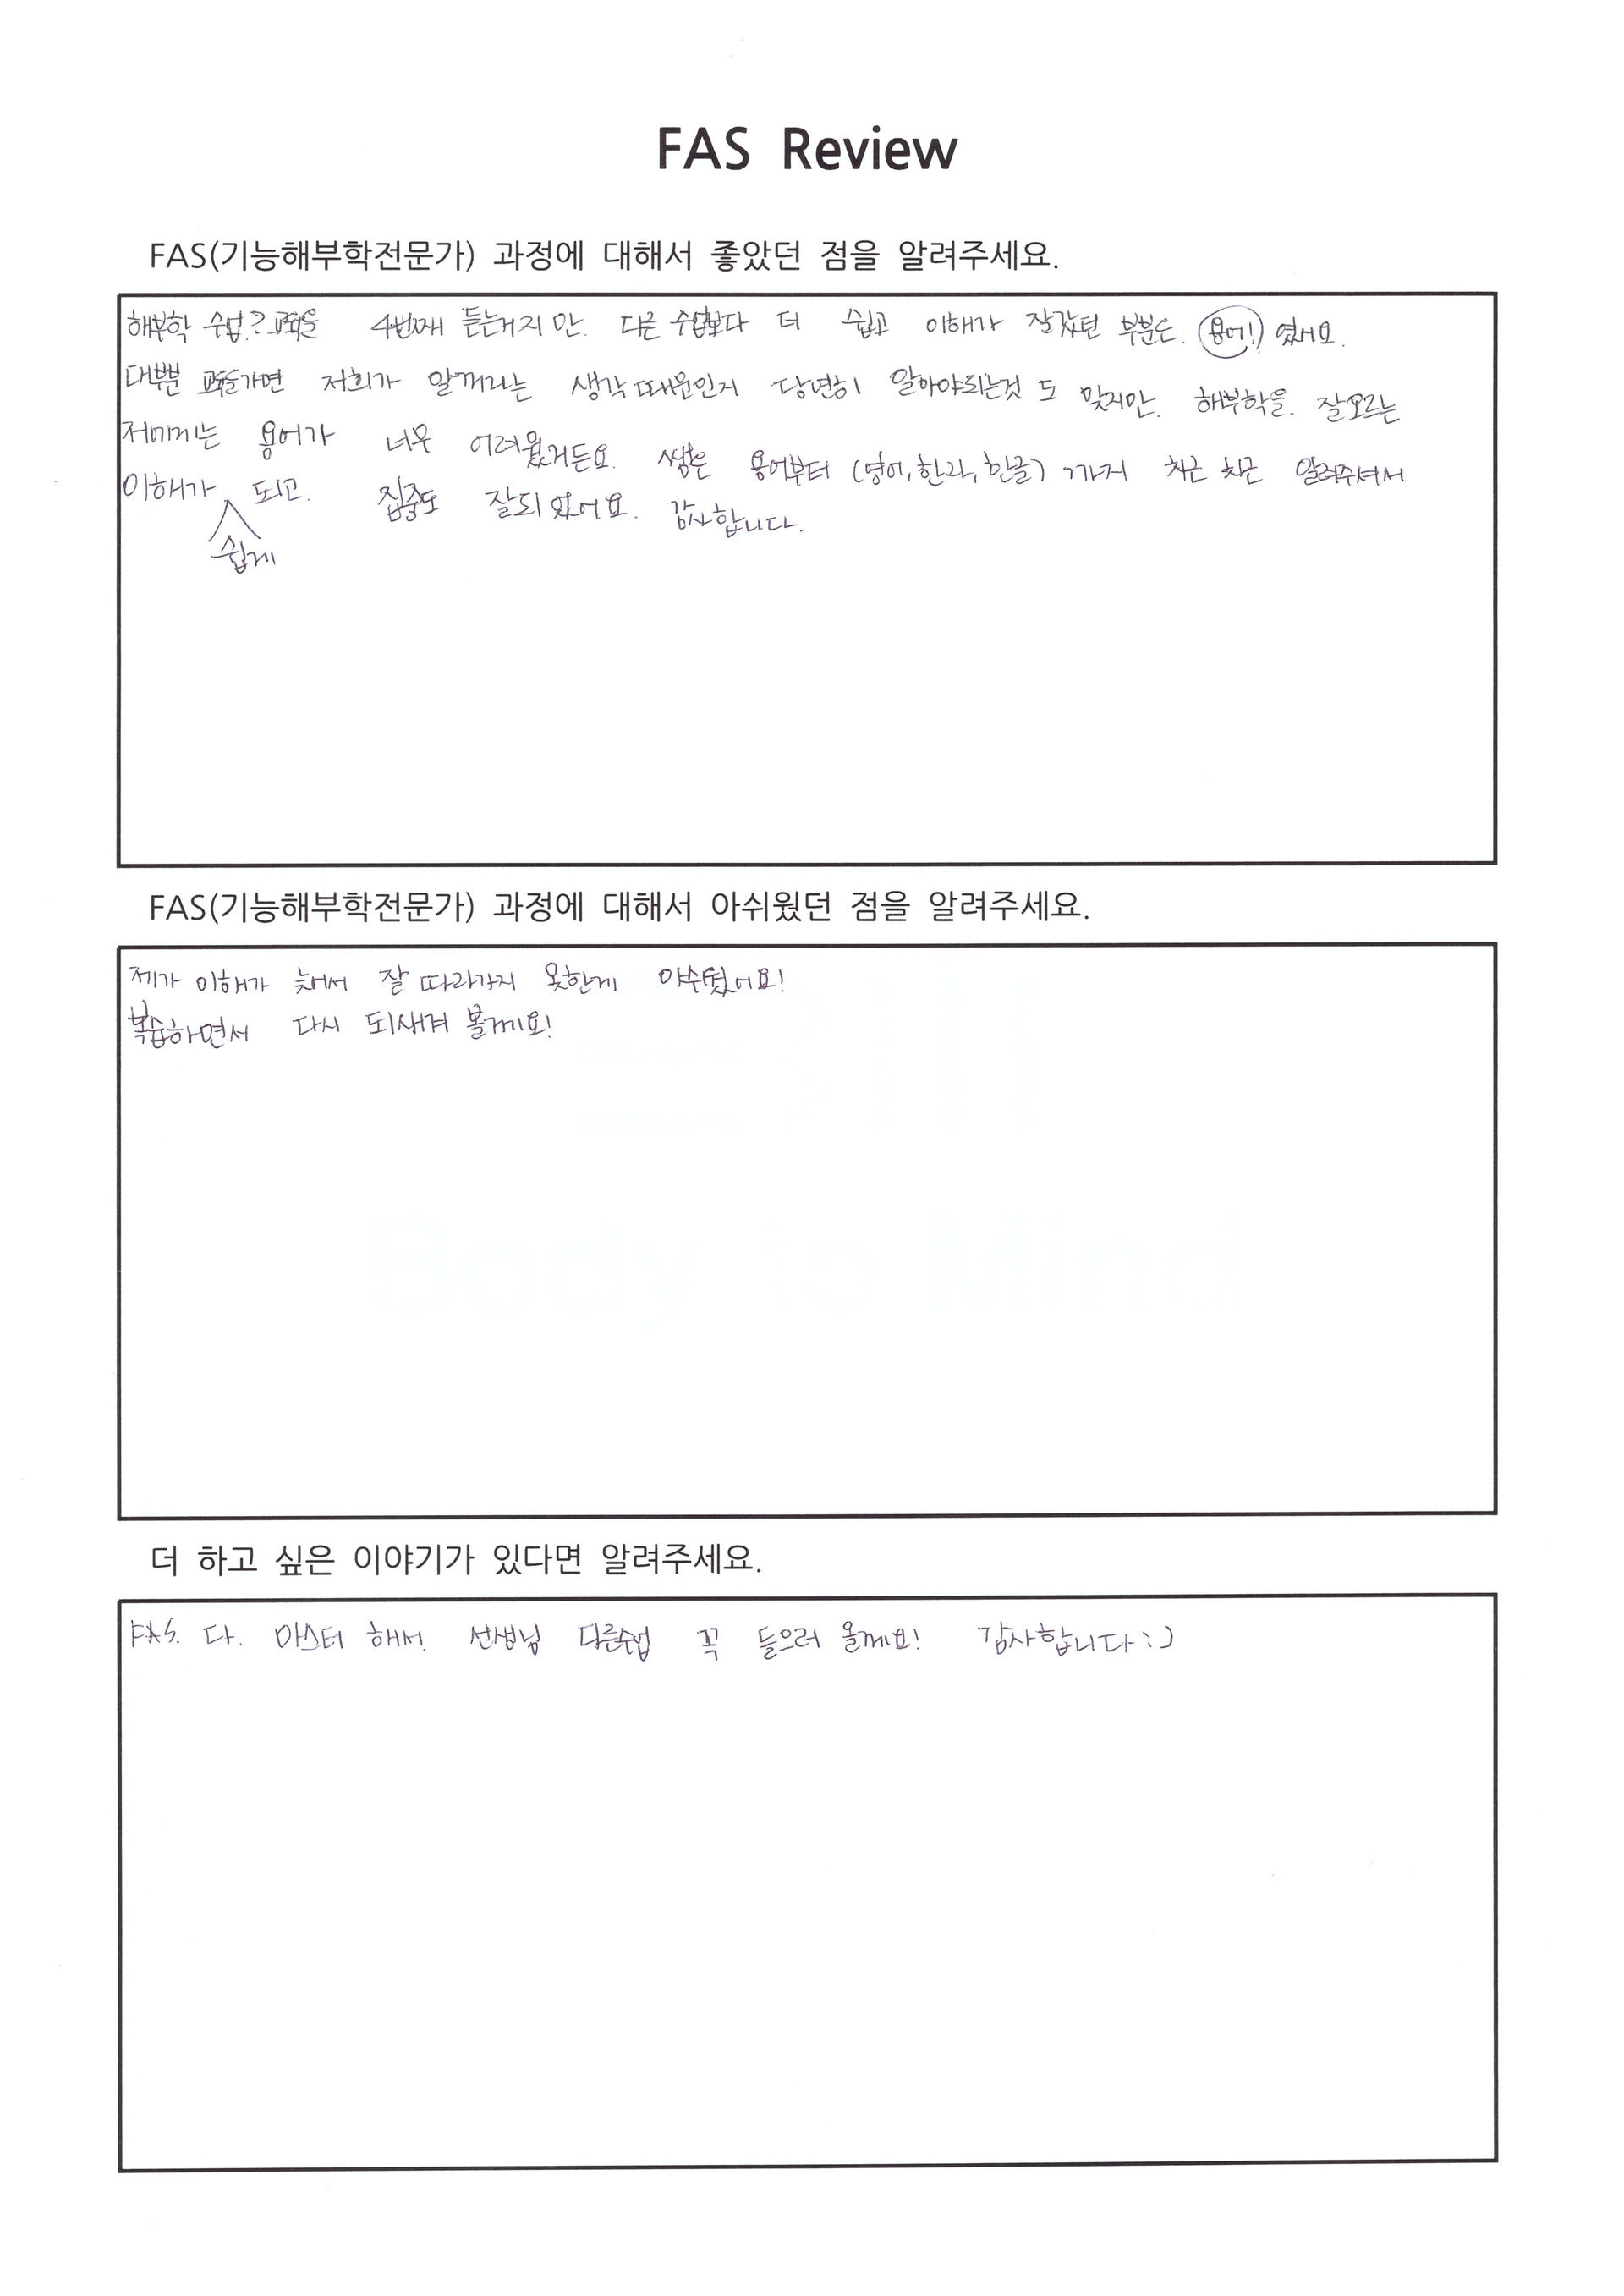 FAS Review
FAS(기능해부학전문가) 과정에 대해서 좋았던 점을 알려주세요.
해부학 수업? 교육을 4번째 듣는거지만. 다른 수업보다 더 쉽고 이해가 잘갔던 부분은. 용어! 였어요.
대부분 교육들가면 저희가 알꺼라는 생각 때문인지 당연히 알아야되는것 도 맞지만. 해부학을. 잘모르는
저에게는 용어가 너무 어려웠거든요. 쌤은 용어부터 (영어, 한자, 한글) 까지 차근 차근 알려주셔서
이해가 쉽게 되고. 집중도 잘되었어요. 감사합니다.
FAS(기능해부학전문가) 과정에 대해서 아쉬웠던 점을 알려주세요.
제가 이해가 늦어서 잘 따라가지 못한게 아쉬웠어요!
복습하면서 다시 되새겨 볼께요!
더 하고 싶은 이야기가 있다면 알려주세요.
FAS. 다. 마스터 해서. 선생님 다른수업 꼭 들으러 올께요! 감사합니다 :)